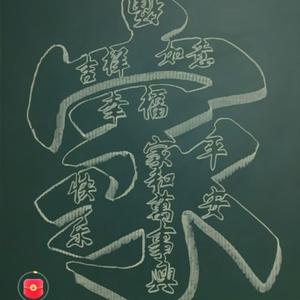 家
吉祥 如意
幸福
平安
快乐
家和萬事興